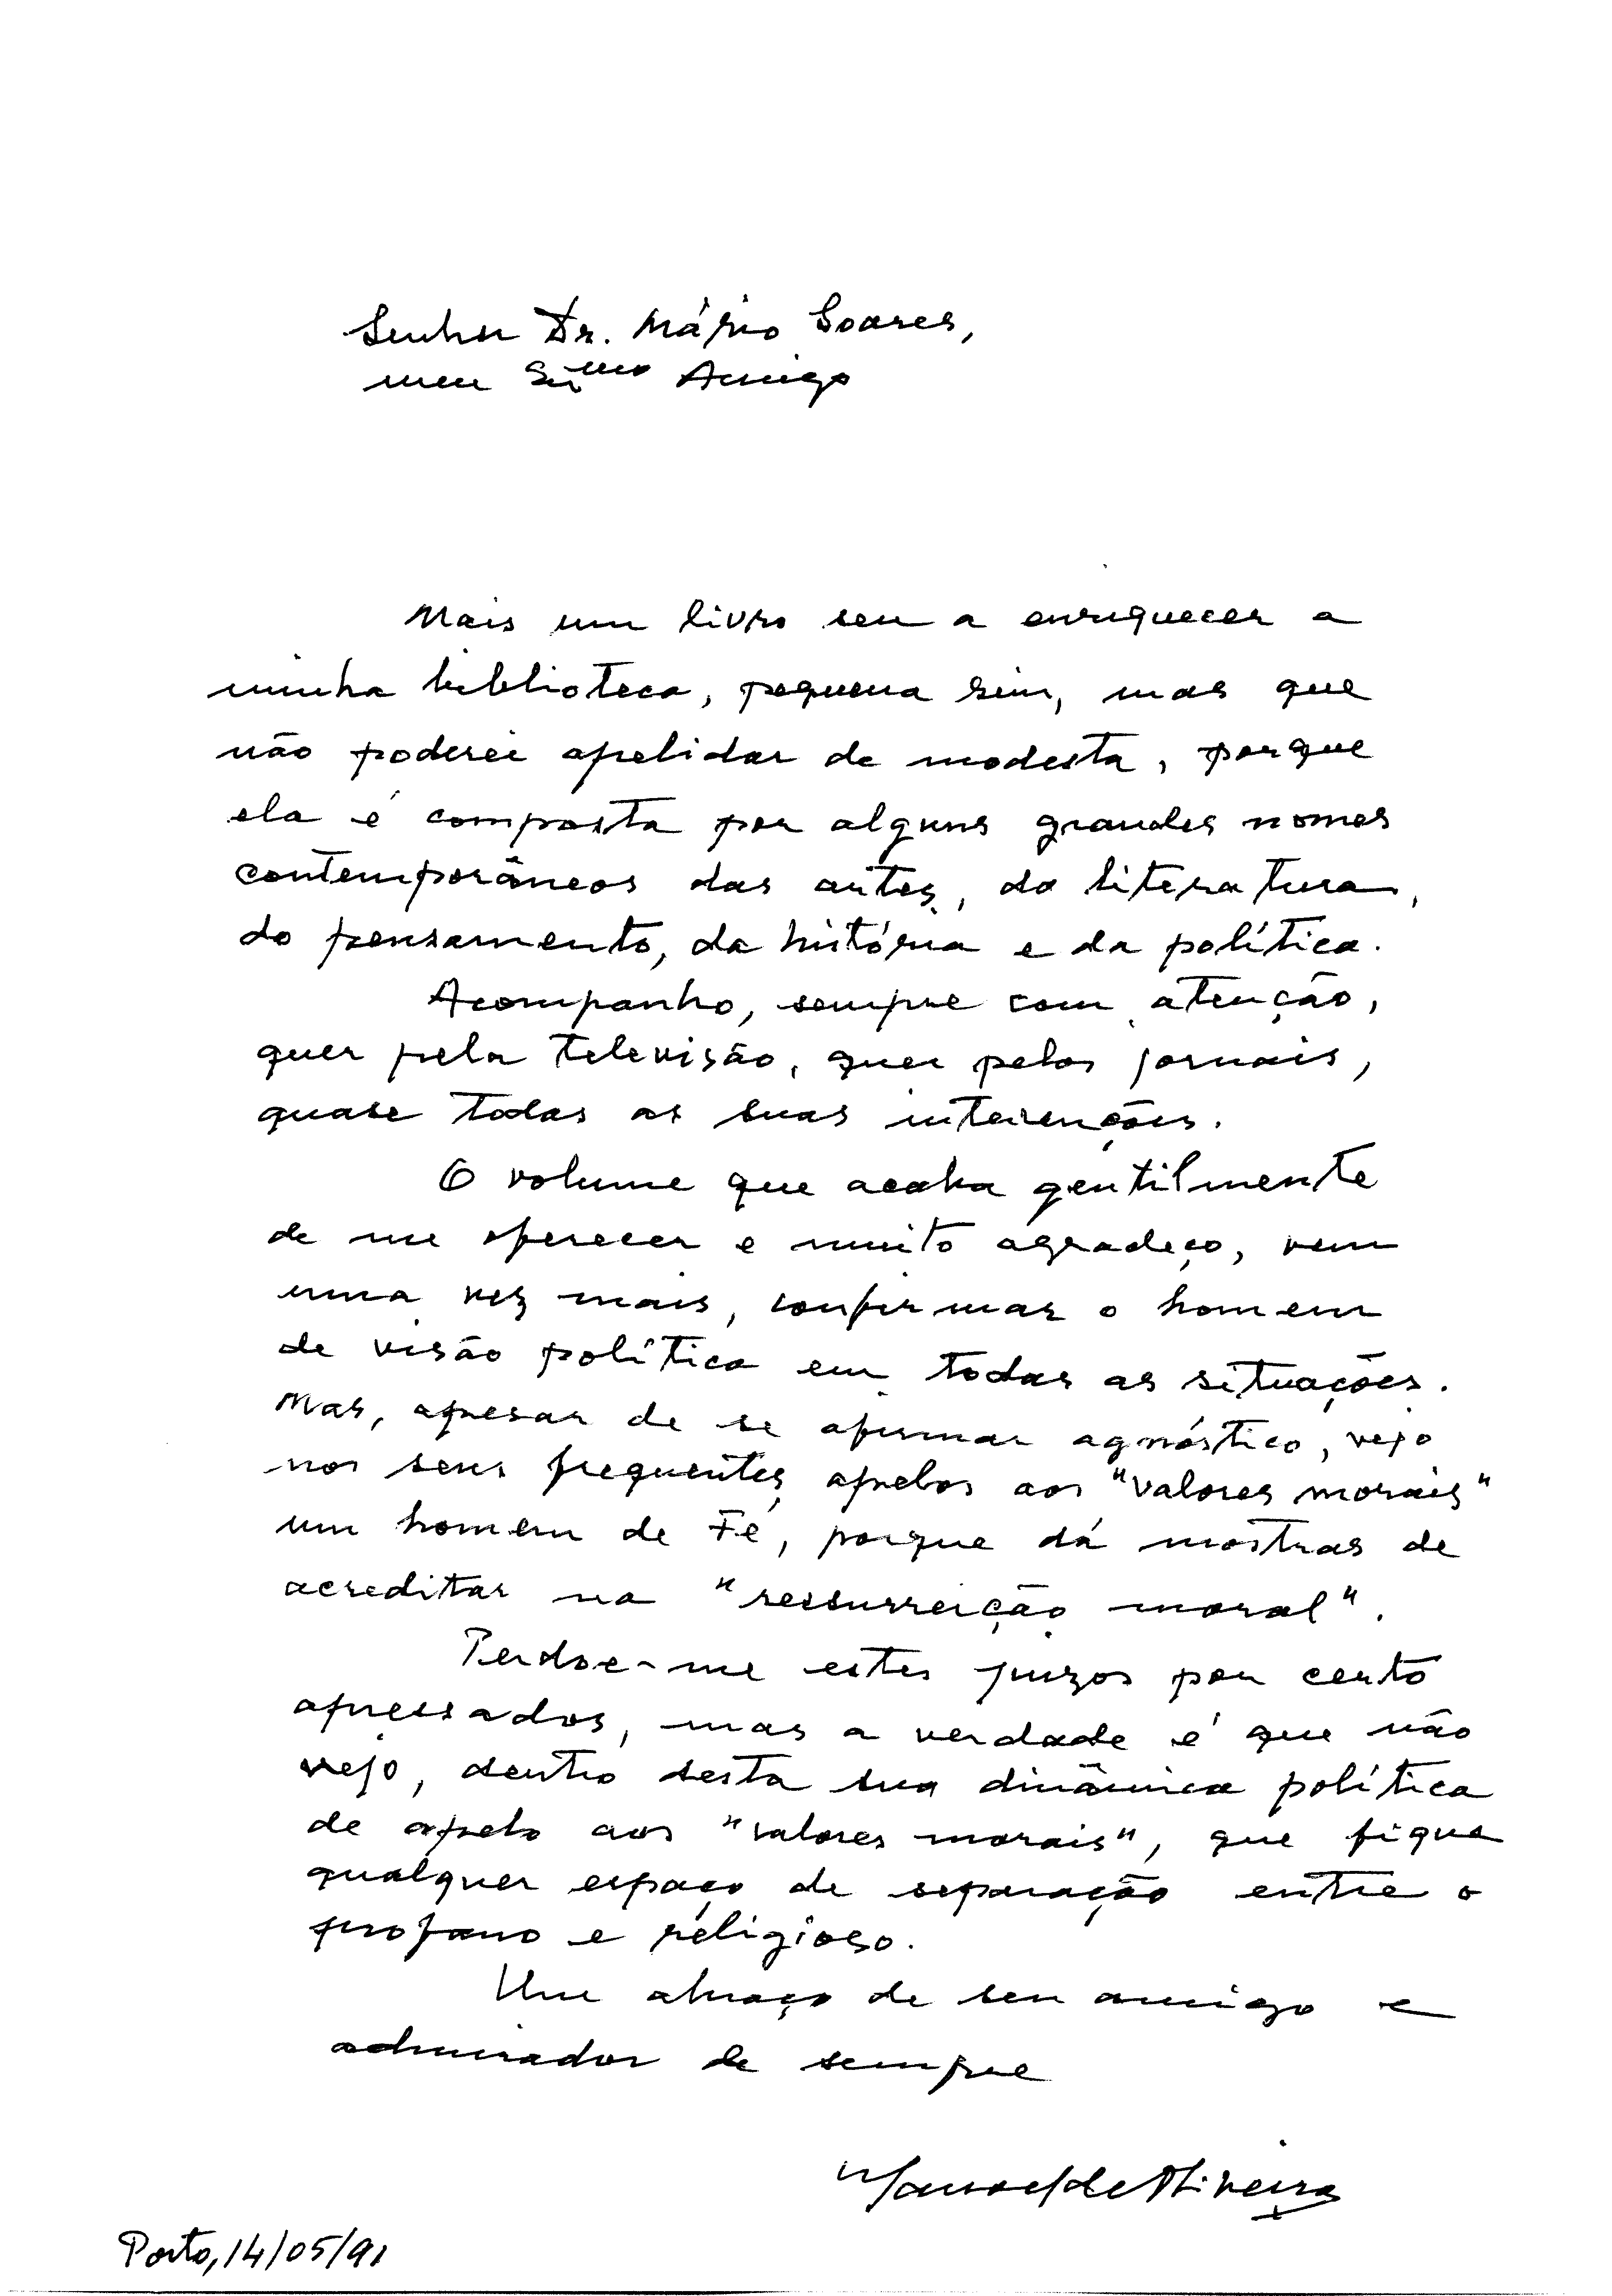 Senhor Dr. Mário Soares,
meu Amigo
Mais um livro seu a enriquecer a
minha biblioteca, pequena sim, mas que
não poderei apelidar de modesta, porque
ela é composta por alguns grandes nomes
contemporâneos das artes, da literatura,
do pensamento, da história e da política.
Acompanho, sempre com atenção,
quer pela televisão, quer pelos jornais,
quase todas as suas intervenções.
O volume que acaba gentilmente
de me oferecer e muito agradeço, vem
uma vez mais, confirmar o homem
de visão política em todas as situações.
Mas, apesar de se afirmar agnóstico, vejo
nos seus frequentes apelos aos "valores morais"
um homem de Fé, porque dá mostras de
acreditar na "ressurreição moral".
Perdoe-me estes juizos por certo
apressados, mas a verdade é que não
vejo, dentro desta sua dinâmica política
de apelo aos "valores morais", que fique
qualquer espaço de separação entre o
profano e religioso.
Um abraço de seu amigo e
admirador de sempre
Manoel de Oliveira
Porto, 14/05/91